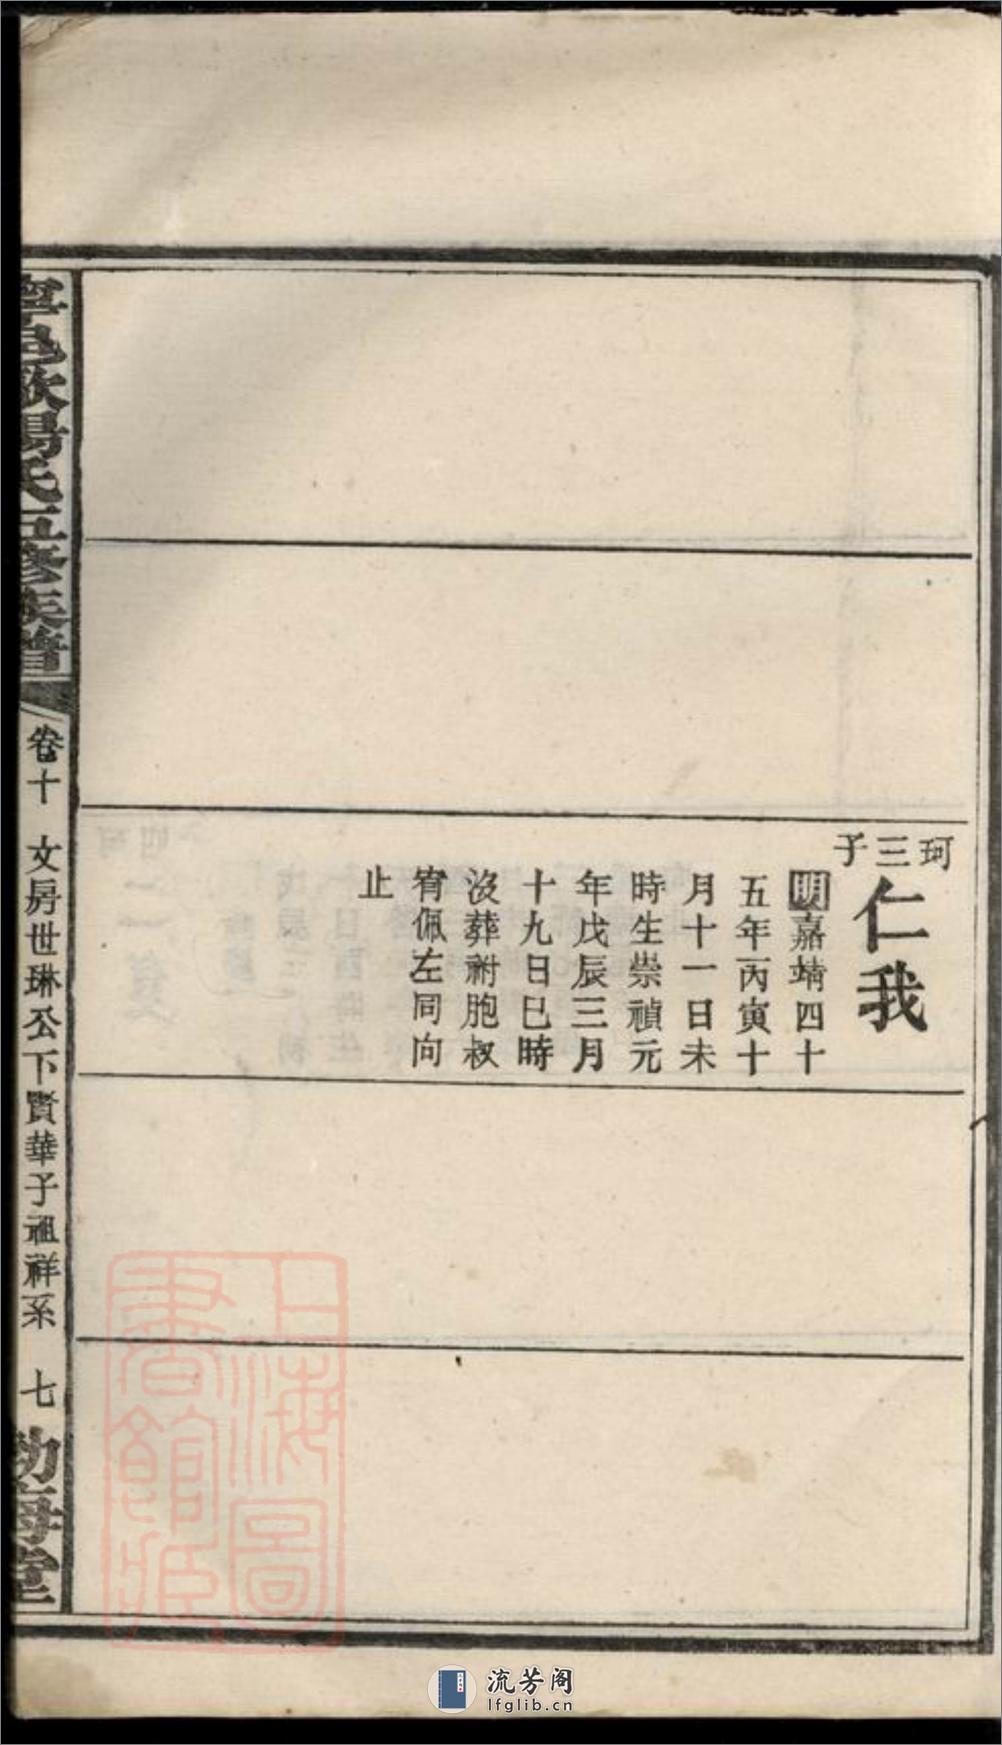 珂三子
仁我
明嘉靖四十
五年丙寅十
月十一日未
時生崇禎元
年戊辰三月
十九日巳時
沒葬祔胞叔
宥佩左同向
止
寧邑歐陽氏五修族譜
卷十 文房世琳公下賢華子祖祥系 七
上海圖書館藏
流芳阁
lfglib.cn